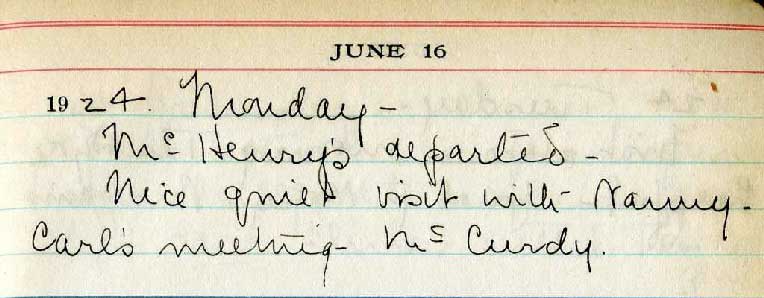 JUNE 16
1924. Monday-
McHenry's departed-
Nice quiet visit with Nanny-
Carl's meeting- McCurdy.